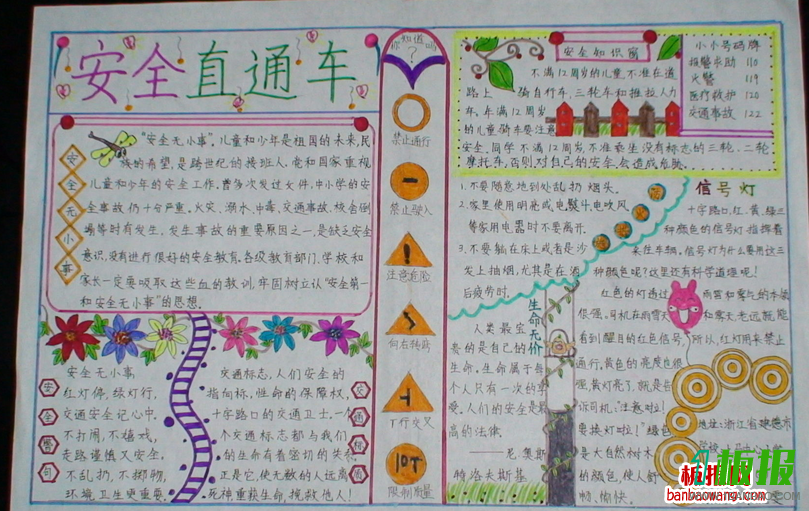 安全直通车
"安全无小事",儿童和少年是祖国的未来,民
族的希望,是跨世纪的接班人,党和国家重视
儿童和少年的安全工作。曾多次发过文件,中小学的安
全事故仍十分严重。火灾、溺水、中毒、交通事故、校舍倒
塌等时有发生,发生事故的重要原因之一,是缺乏安全
意识,没有进行很好的安全教育。各级教育部门、学校和
家长一定要吸取这些血的教训,牢固树立认"安全第一
和安全无小事"的思想。
安全无小事
安全警句
安全无小事,
红灯停,绿灯行,
交通安全记心中。
不打闹,不嬉戏,
走路谨慎又安全。
不乱扔,不掷物,
环境卫生更重要。
交通标志,人们安全的
指向标,性命的保障权,
十字路口的交通卫士。一个
个交通标志都与我们
的生命有着密切的关
正是它,使无数的人远离
死神重获生命,挽救他人!
你知道吗
?
禁止通行
禁止驶入
注意危险
向右转弯
丁行交叉
10T
限制质量
安全知识窗
不满12周岁的儿童,不准在道
路上骑自行车、三轮车和推拉人力
车,车满12周岁
的儿童骑车要注意
安全,同学不满12周岁,不准乘坐没有标志的三轮、二轮
摩托车,否则对自己的安全会造成危险。
小小号码牌
报警求助 110
火警 119
医疗救护 120
交通事故 122
1.不要随意地到处乱扔烟头。
2.家里使用明亮或电熨斗电吹风
等家用电器时不要离开。
3.不要躺在床上或者是沙
发上抽烟,尤其是在酒
后疲劳时。
生命无价
人类最宝
要的是自己的
生命,生命属于每
个人只有一次的享
受。人们的安全是最
高的法律。
——尼·奥斯
特洛夫斯基
信号灯
十字路口,红、黄、绿三
种颜色的信号灯指挥着
来往车辆。信号灯为什么要用这三
种颜色呢?这里还有科学道理呢!
红色的灯透过雨雾和雾气的本领
很强。司机在雨雾天和雾天,老远就能
看到醒目的红色信号,所以,红灯用来禁止
通行,黄色的亮度也很
强,黄灯亮了,就是告
诉司机:"注意啦!
要换灯啦!"绿色
是大自然树木
的颜色,使人舒
畅、愉快。
地址:浙江省建德市
板报网
banbaowang.com